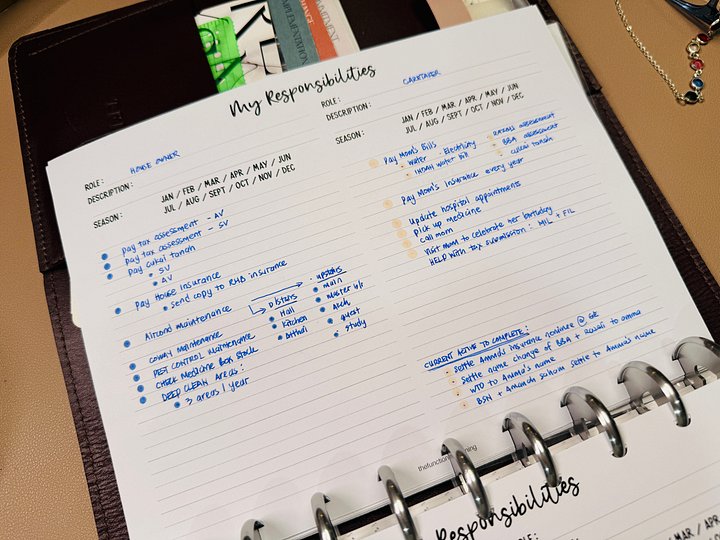 IMPLEMENTATION
My Responsibilities
ROLE: HOUSE OWNER
DESCRIPTION:
JAN / FEB / MAR / APR / MAY / JUN
SEASON: JUL / AUG / SEPT / OCT / NOV / DEC
Pay tax assessment - AV
Pay tax assessment - SV
Pay cukai tanah
SV
AV
Pay House Insurance
send copy to RHB insurance
Aircond maintenance
COWAY Maintenance
PEST CONTROL Maintenance
CHECK Medicine Box Stock
DEEP CLEAN AREAS:
3 areas / year
D/stairs
Hall
Kitchen
upstairs
main
Master b/r
guest
study
ROLE: CARETAKER
DESCRIPTION:
JAN / FEB / MAR / APR / MAY / JUN
SEASON: JUL / AUG / SEPT / OCT / NOV / DEC
Pay Mom's Bills
Water
Electricity
Indah water bill
BBA assessment
cukai tanah
Pay Mom's Insurance every year
Update hospital appointments
Pick up medicine
Call mom
Visit mom to celebrate her birthday
HELP with tax submission: MIL + FIL
CURRENT ACTIVE TO COMPLETE:
Settle Amma's insurance nominee @ GE
Settle name change of BBA + Rawai to amma
WTD to Amma's name
BSN + Amanah saham settle to Amma's name
thefunction
Responsibilities
ROLE:
MAR / APR